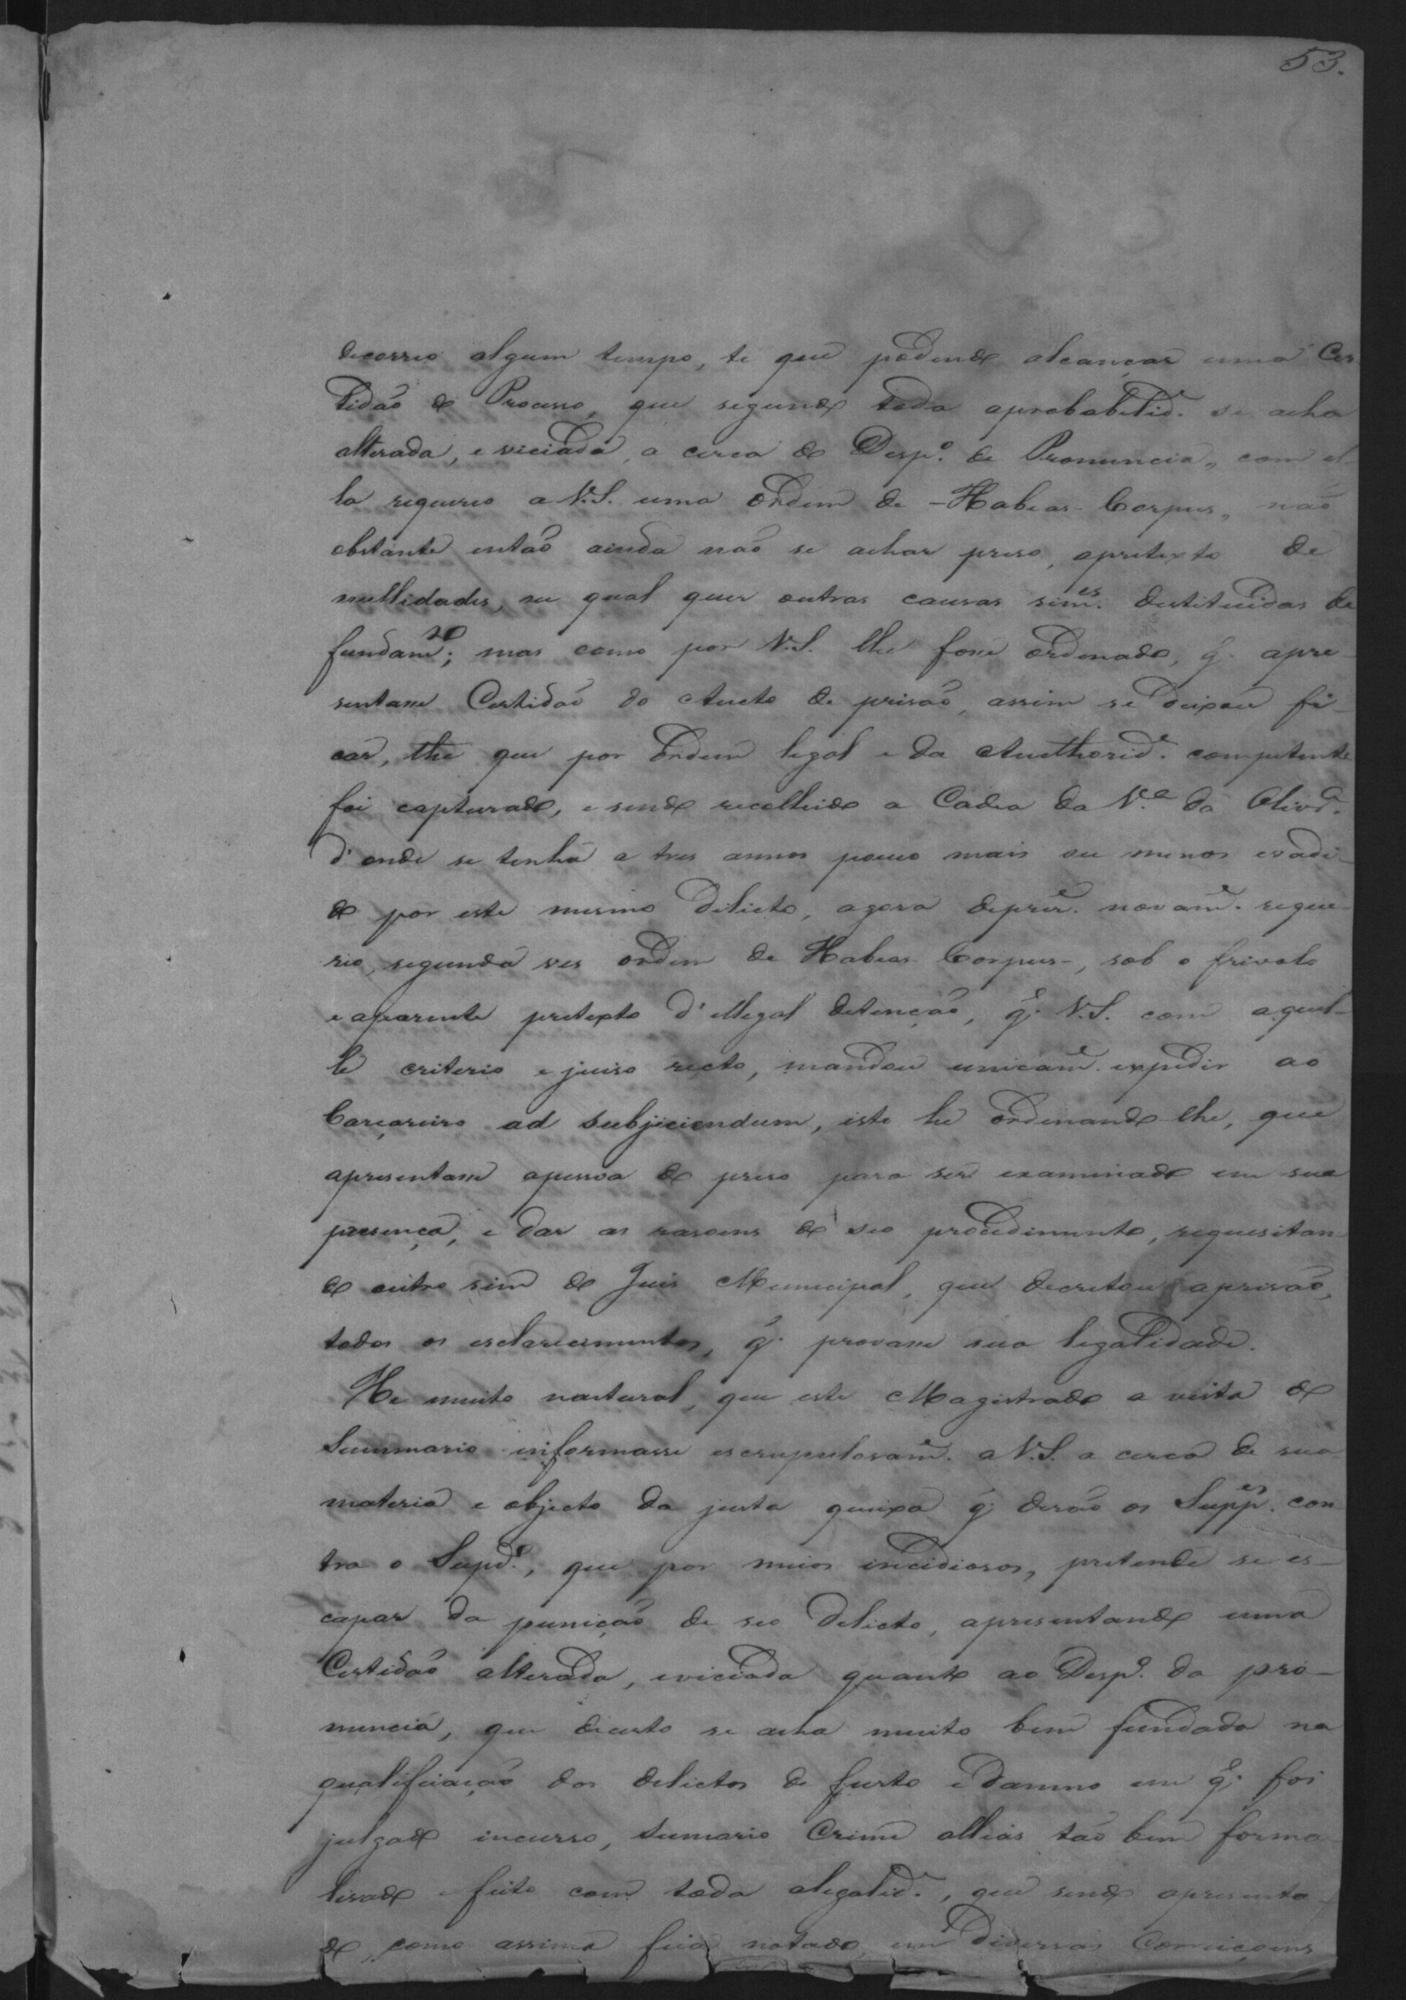 53.
decorreo algum tempo, té que podendo alcançar uma Cer
tidão do Processo, que segundo toda aprobabelid.e se acha
alterada, e viciada, a cerca do Desp.o de Pronuncia, com el-
la requereo a V.S. uma Ordem de - Habeas - Corpus, não
obstante então ainda não se achar preso, apretexto de
nullidades, ou qual quer outras causas sim.es destituidas de
fundam.to; mas como por V.S. lhe fosse ordenado, q. apre-
sentasse Certidão do Aucto de prisão, assim se deixou fi-
car, thé que por Ordem legal e da Aucthorid.e competente
foi capturado, e sendo recolhido a Cadea da V.a da Olivr.a
d'onde se tenha a tres annos pouco mais ou menos evadi-
do por este mesmo delicto, agora novam.e reque-
reo, segunda ves ordem de Habeas Corpus -, sob o frivolo
e aparente pretexto d'illegal detenção, q.e V.S. com aquel-
le criterio e juiso recto, mandou unicam.e expedir ao
Carçareiro ad subjiciendum, isto he ordenando lhe, que
apresentasse apessoa do preso para ser examinado em sua
presença, e dar as rasoens do seo procedimento, requesitan-
do outro sim do Juis Municipal, que decretou aprisão,
todos os esclarecimentos, q.e provasse sua legalidade.
He muito naetural, que este Magistrado a vista do
Summario informasse escrupulosam.e a V.S. a cerca de sua
materia e objecto da justa queixa q.e derão os Supp.es con
tra o Supd.o, que por meios incidiosos, pretende se es-
capar da punição de seo delicto, apresentando uma
Certidão alterada, eviciada quanto ao Desp.o da pro-
nuncia, que decerto se acha muito bem fundada na
qualificiação dos delictos de furto e damno em q.e foi
julgado incurso, sumario Crime alliás tão bem forma
lisado e feito com toda alegalid.e, que sendo apresenta-
do, como assima fica notado, em diversas Correiçoens